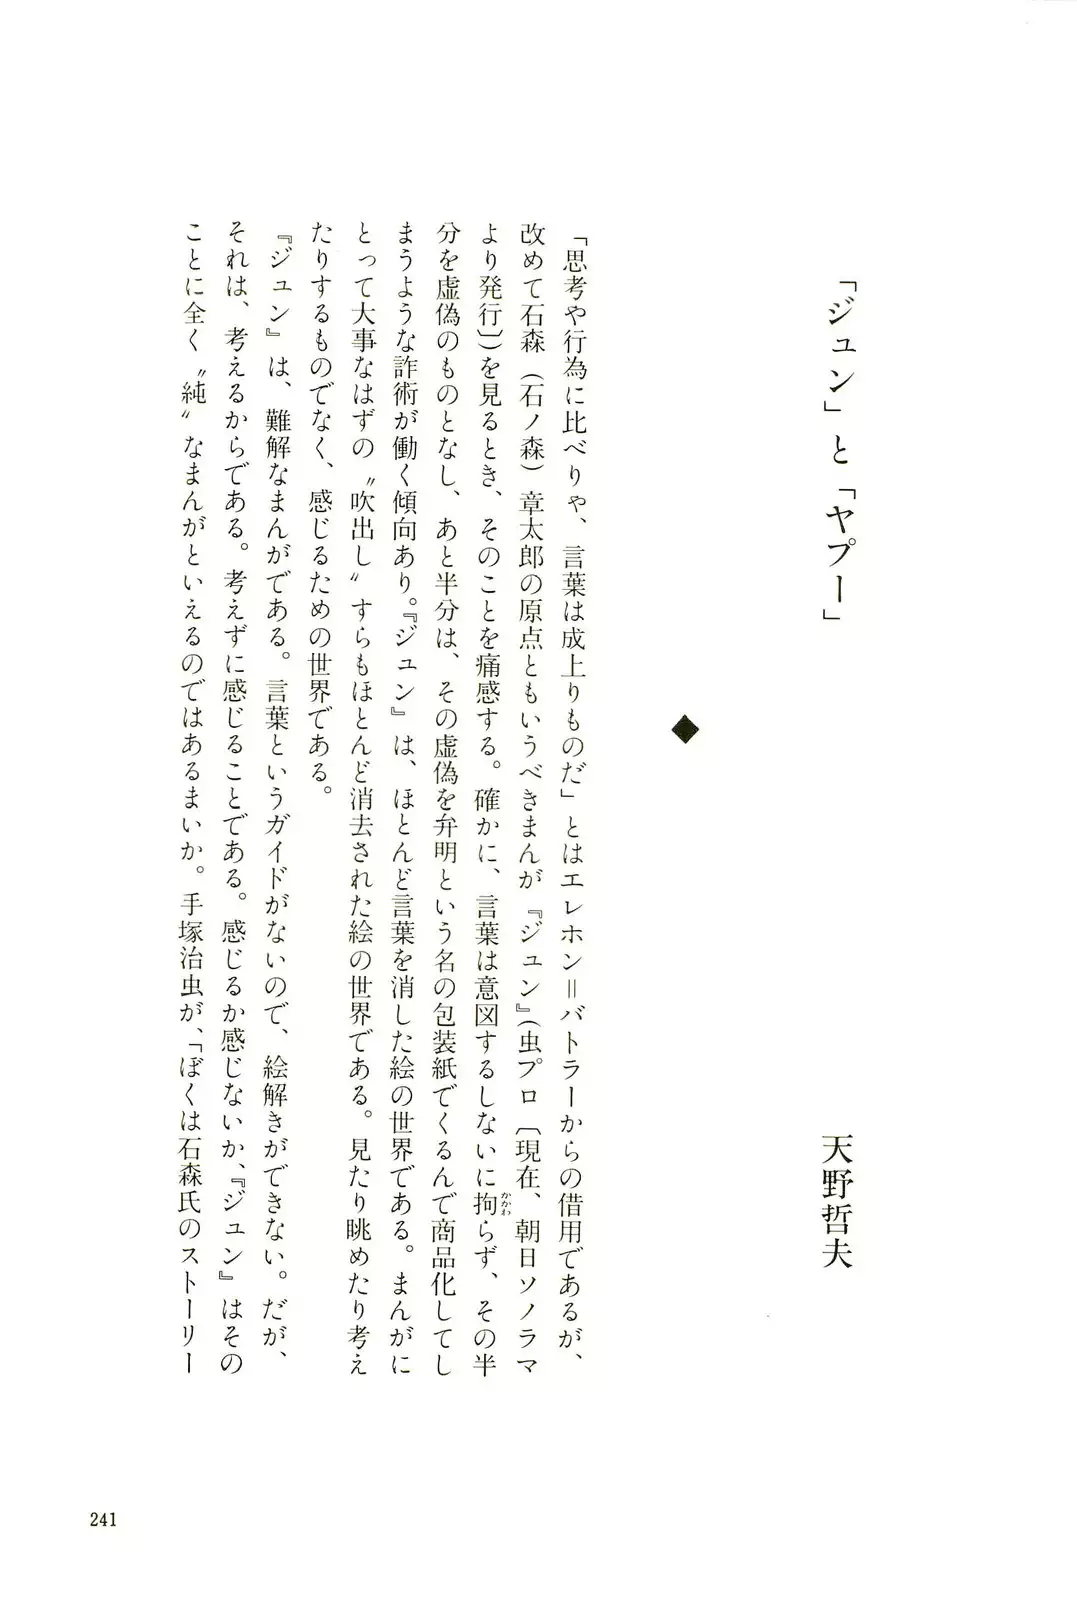 「ジュン」と「ヤプー」
天野哲夫
◆
「思考や行為に比べりゃ、言葉は成上りものだ」とはエレホン＝バトラーからの借用であるが、
改めて石森（石ノ森）章太郎の原点ともいうべきまんが『ジュン』（虫プロ〔現在、朝日ソノラマ
より発行〕）を見るとき、そのことを痛感する。確かに、言葉は意図するしないに拘らず、その半
分を虚偽のものとなし、あと半分は、その虚偽を弁明という名の包装紙でくるんで商品化してし
まうような詐術が働く傾向あり。『ジュン』は、ほとんど言葉を消した絵の世界である。まんがに
とって大事なはずの〝吹出し〟すらもほとんど消去された絵の世界である。見たり眺めたり考え
たりするものでなく、感じるための世界である。
『ジュン』は、難解なまんがである。言葉というガイドがないので、絵解きができない。だが、
それは、考えるからである。考えずに感じることである。感じるか感じないか、『ジュン』はその
ことに全く〝純〟なまんがといえるのではあるまいか。手塚治虫が、「ぼくは石森氏のストーリー
かかわ
241